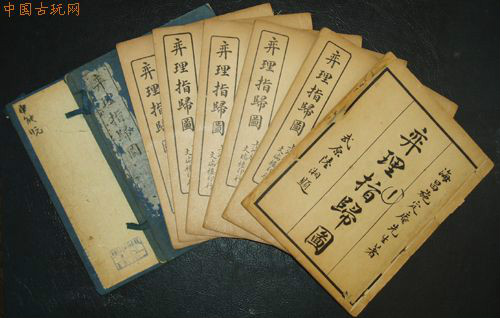 中国古玩网
弈理指歸圖
弈理指歸圖
弈理指歸圖
弈理指歸圖
弈理指歸圖
弈理指歸圖
海昌施定庵先生著
弈理指歸圖
1
武原陸湘題